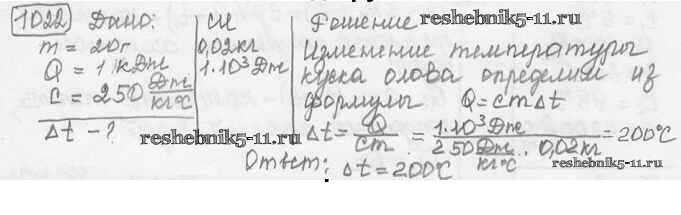 1022 Дано:
m = 20г
Q = 1 кДж
c = 250 Дж/кг°C
Δt - ?
СИ
0,02кг
1·10³Дж
Решение reshebnik5-11.ru
Изменение температуры
куска олова определим из
формулы Q = cmΔt
Δt = Q/cm = 1·10³Дж / 250 Дж/кг°C · 0,02кг = 200°C
reshebnik5-11.ru
Ответ: Δt = 200°C
reshebnik5-11.ru